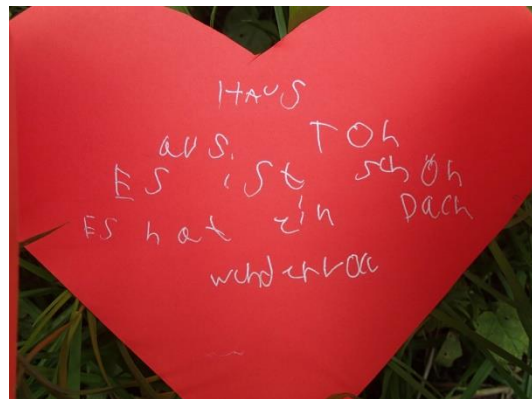 HAUS
aus. TON
ES iSt schön
ES hat ein Dach
wundervoll